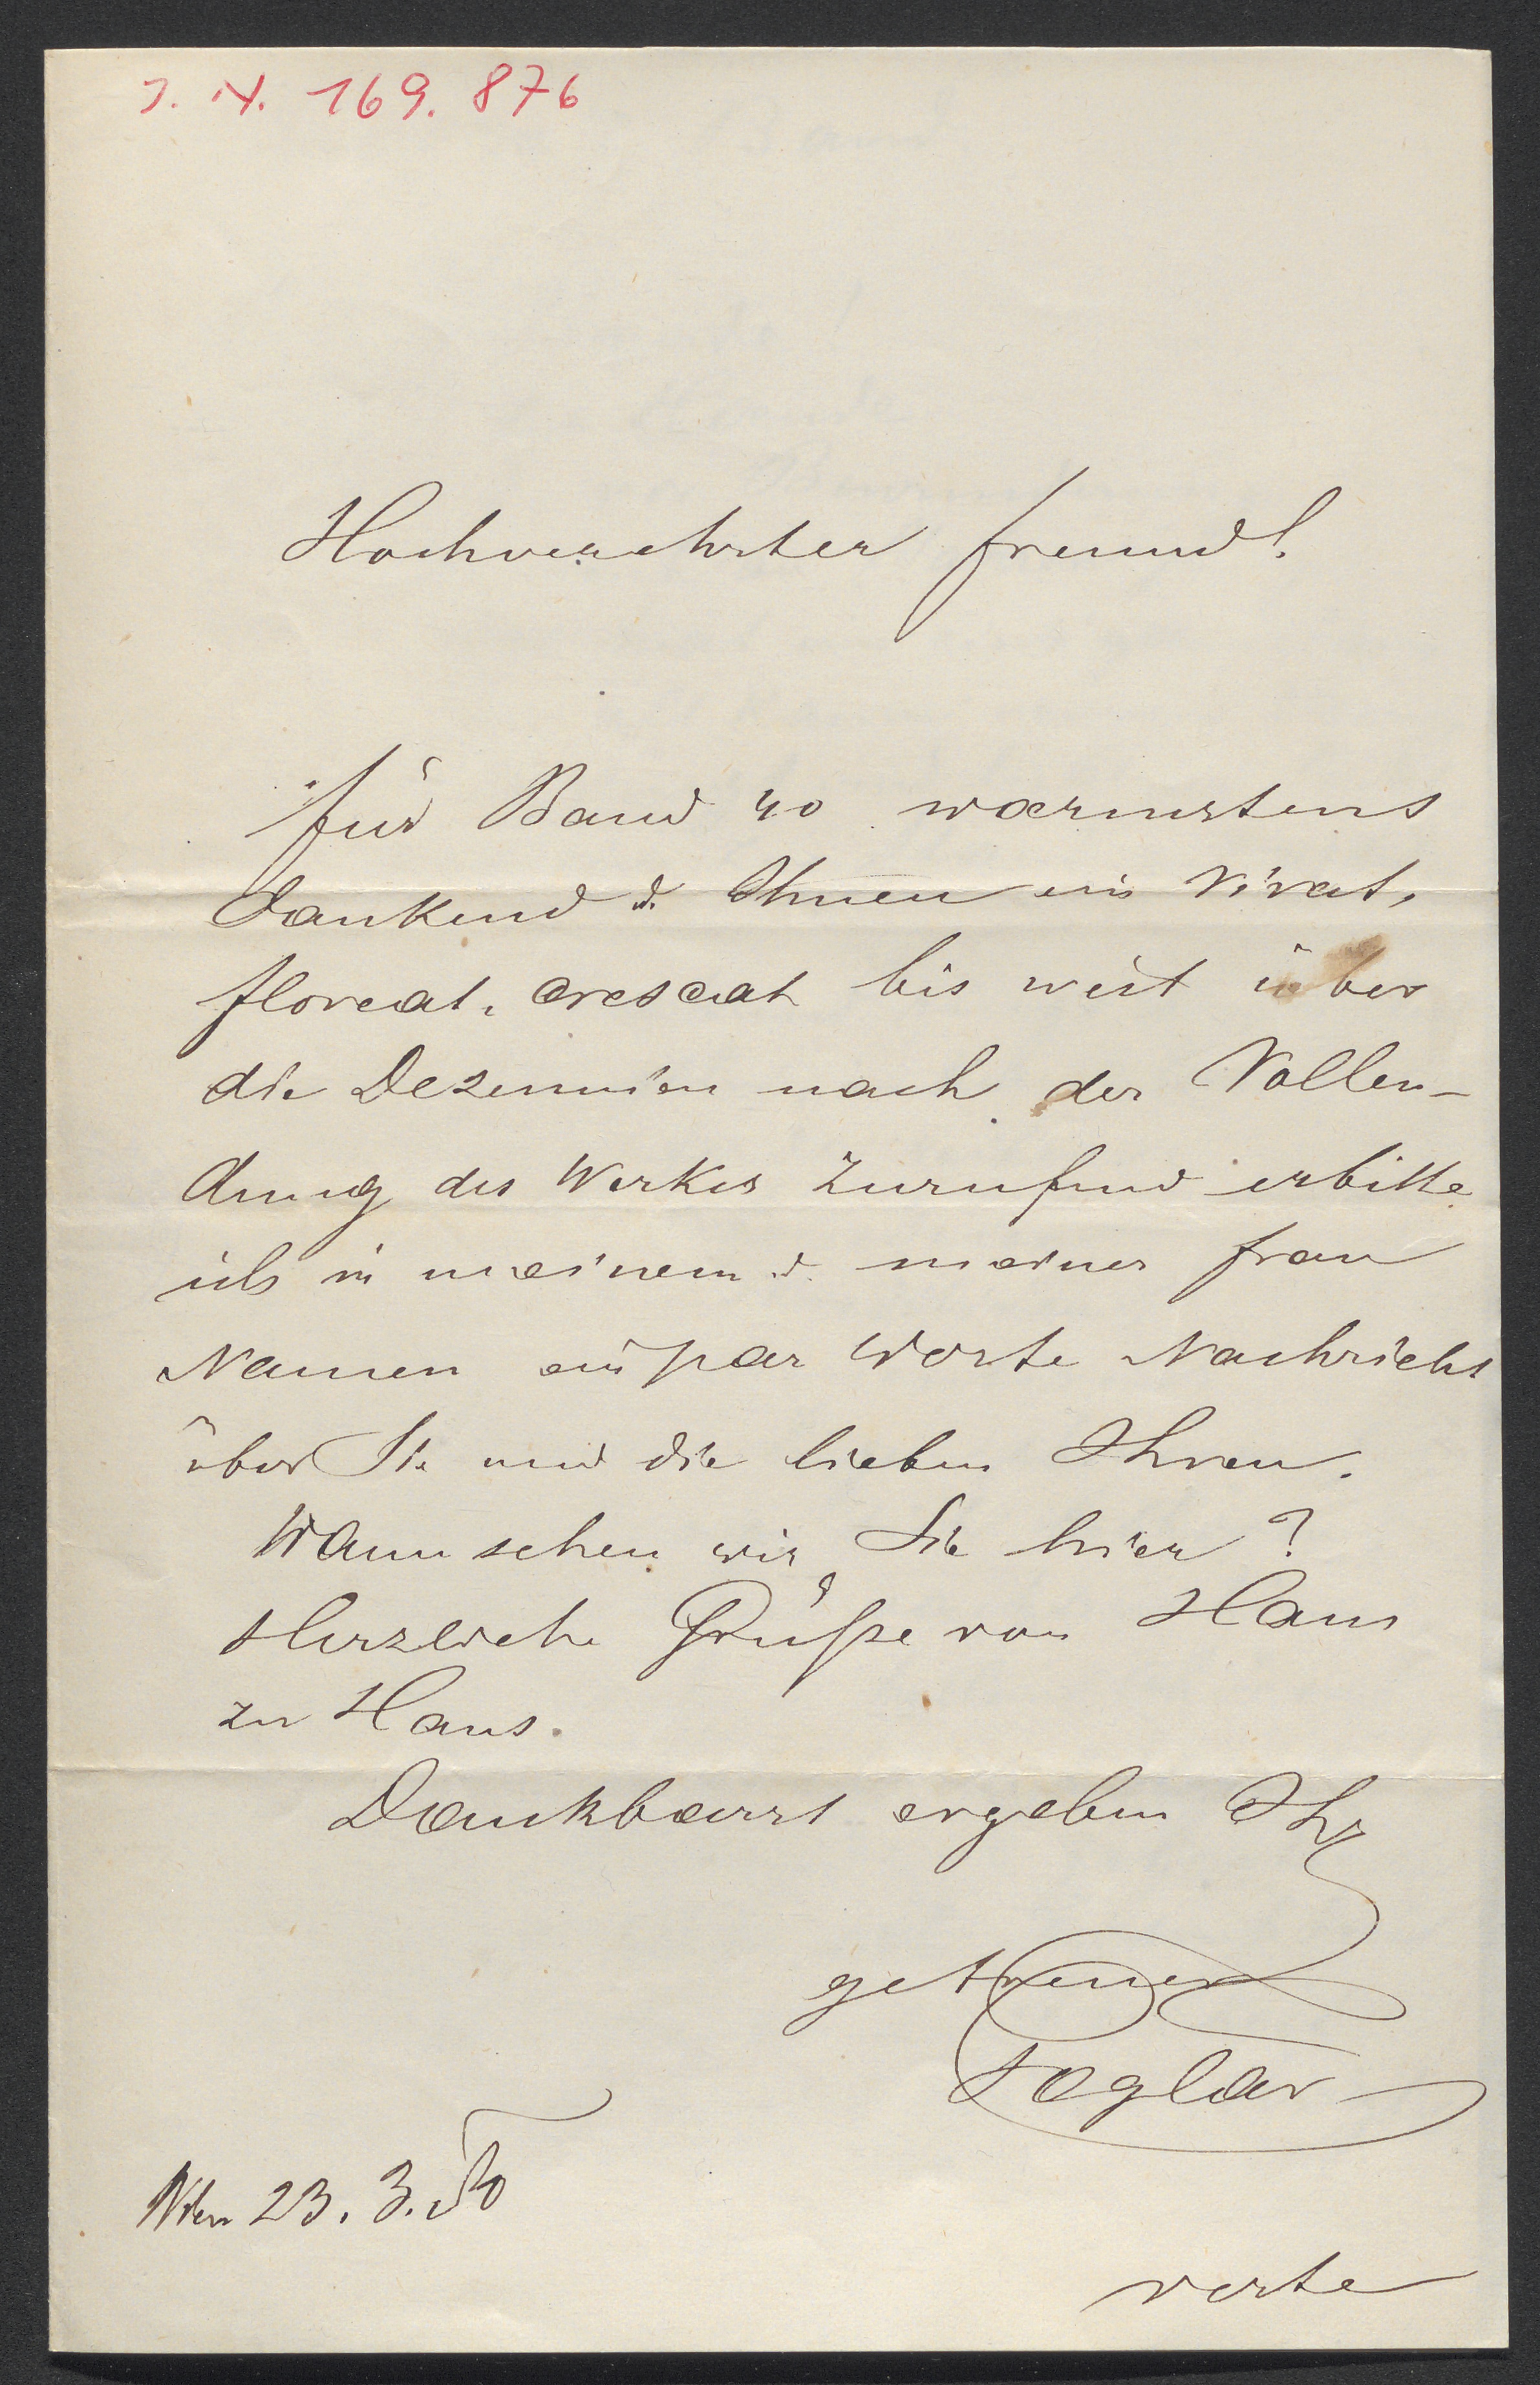 J. N. 169.876
Hochverehrter Freund!
Für Band 40 wærmstens
dankend u. Ihnen ein Vivat,
floreat, crescat bis weit über
die Dezennien nach der Vollen-
dung des Werkes zurufend erbitte
ich in meinem u. meiner Frau
Namen ein par Worte Nachricht
über Sie und die lieben Ihren.
Wann sehen wir Sie hier?
Herzliche Grüße von Haus
zu Haus.
Dankbarst ergeben Ihr
getreuer
Foglar
Wien 23. 3. 80
verte